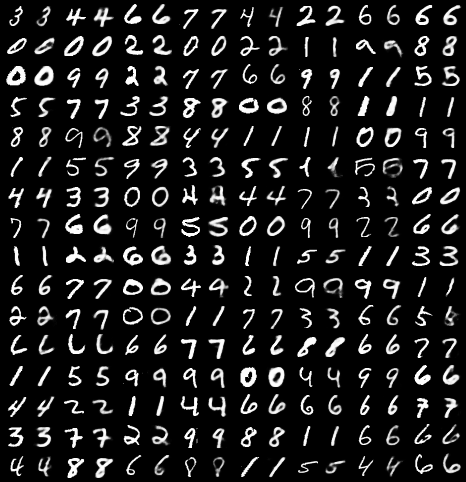 3 3 4 4 6 6 7 7 4 4 2 2 6 6 6 6
0 0 0 0 2 2 0 0 2 2 1 1 9 9 8 8
0 0 9 9 2 2 7 7 6 6 9 9 1 1 5 5
5 5 7 7 3 3 8 8 0 0 8 8 1 1 1 1
8 8 9 9 8 8 4 4 1 1 1 1 0 0 9 9
1 1 5 5 9 9 3 3 5 5 1 1 5 5 7 7
4 4 3 3 0 0 4 4 4 4 7 7 3 3 0 0
7 7 6 6 9 9 5 5 0 0 9 9 2 2 6 6
1 1 2 2 6 6 3 3 1 1 5 5 1 1 3 3
6 6 7 7 0 0 4 4 2 2 9 9 9 9 1 1
2 2 7 7 0 0 1 1 7 7 3 3 6 6 5 5
6 6 6 6 6 6 7 7 6 6 8 8 6 6 7 7
1 1 5 5 9 9 9 9 0 0 4 4 9 9 6 6
4 4 2 2 1 1 4 4 6 6 6 6 6 6 7 7
3 3 7 7 2 2 9 9 8 8 1 1 6 6 6 6
4 4 8 8 6 6 8 8 1 1 5 5 4 4 6 6